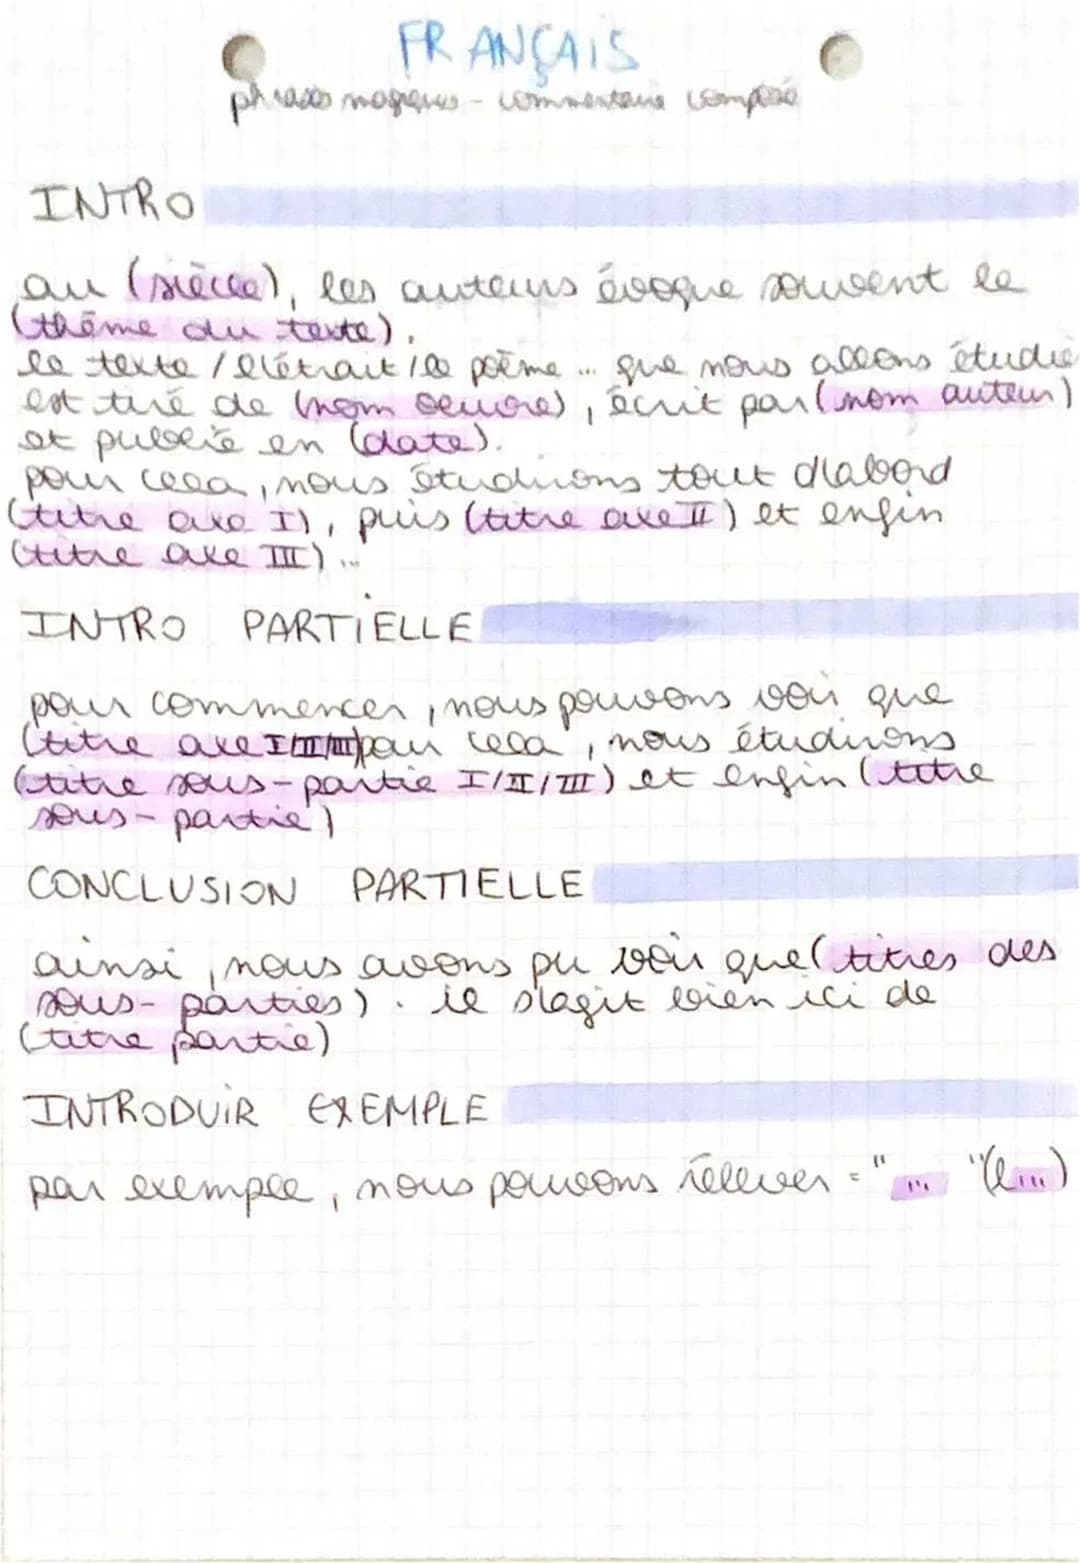 FRANÇAIS
phrases magiques - commentaire composé
INTRO
au (siècle), les auteurs évoque souvent le
(thème du texte).
le texte / l'étrait / le poème ... que nous allons étudie
est tiré de (nom oeuvre), écrit par (nom auteur)
et publié en (date).
pour cela, nous étudirons tout d'abord
(titre axe I), puis (titre axe II) et enfin
(titre axe III)...
INTRO PARTIELLE
pour commencer, nous pouvons voir que
(titre axe I/II/III) pour cela, nous étudirons
(titre sous-partie I/II/III) et enfin (titre
sous-partie)
CONCLUSION PARTIELLE
ainsi, nous avons pu voir que (titres des
sous-parties). il s'agit bien ici de
(titre partie)
INTRODUIR EXEMPLE
par exemple, nous pouvons rellever = "... "(l...)